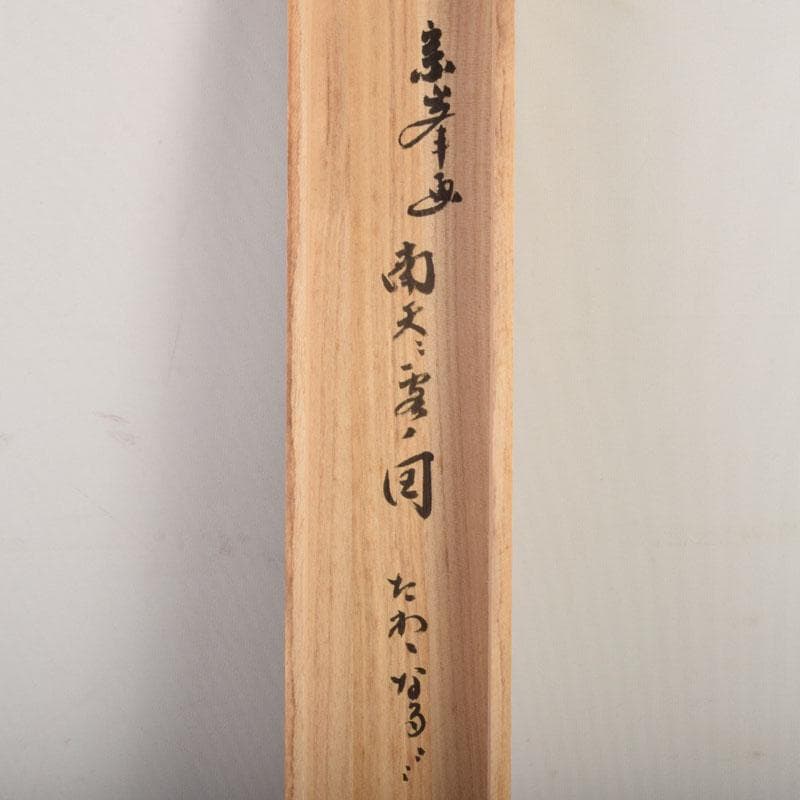 宗峯画 南天ニ雪ノ図 たわゝなる